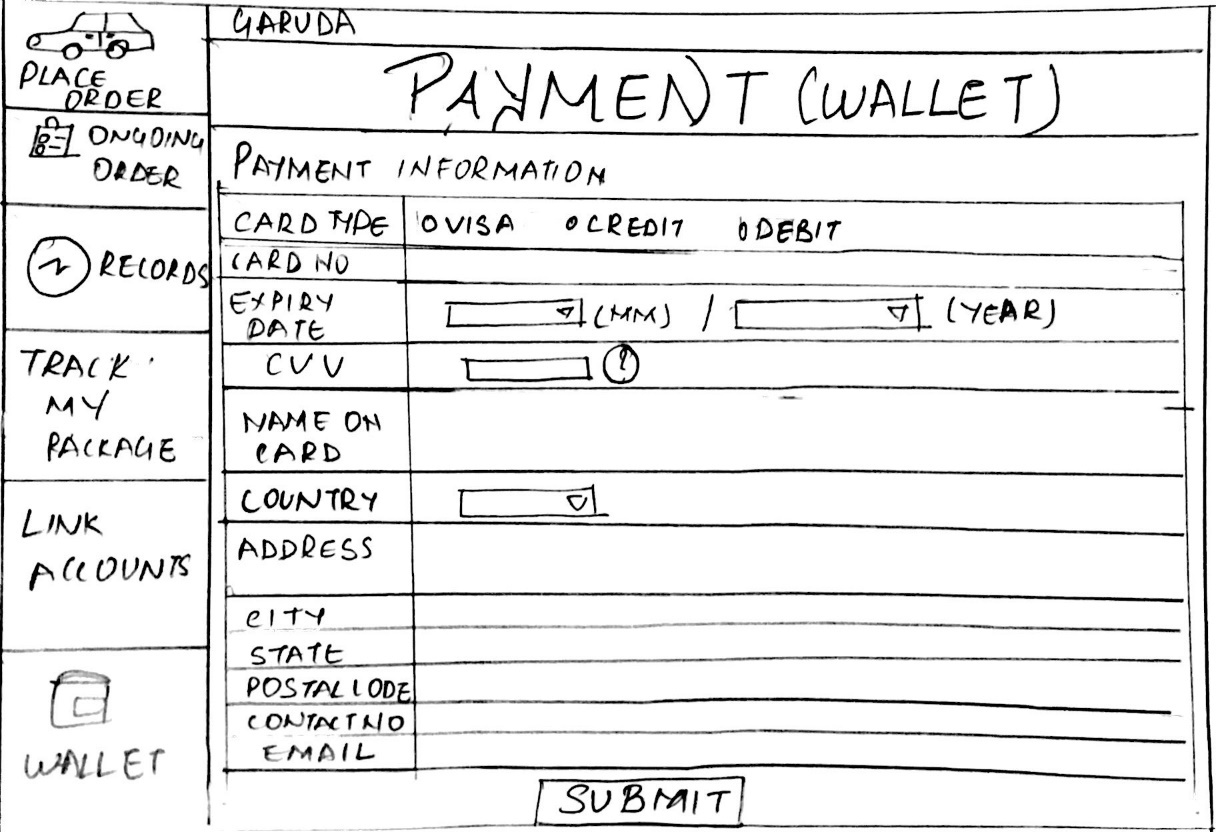 PLACE
ORDER
ONGOING
ORDER
RECORDS
TRACK
MY
PACKAGE
LINK
ACCOUNTS
WALLET
GARUDA
PAYMENT (WALLET)
PAYMENT INFORMATION
CARD TYPE VISA CREDIT DEBIT
CARD NO
EXPIRY
DATE (MM) / (YEAR)
CVV ?
NAME ON
CARD
COUNTRY
ADDRESS
CITY
STATE
POSTAL CODE
CONTACT NO
EMAIL
SUBMIT